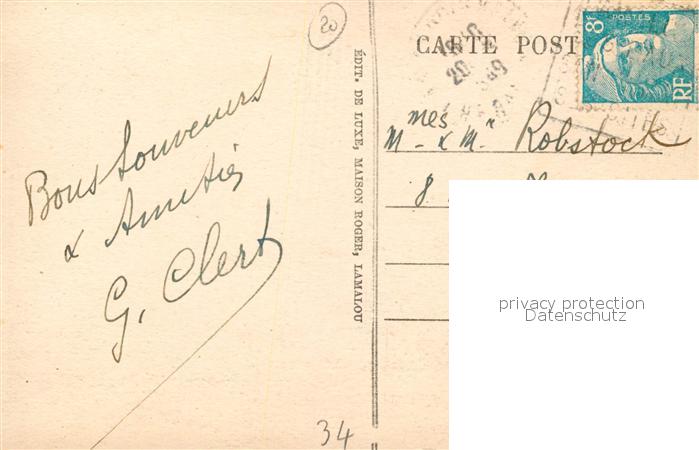 20
CARTE POST
8F
POSTES
RF
Bons Souvenirs
& Amitiés
G. Clert
ÉDIT. DE LUXE, MAISON ROGER, LAMALOU
mes
Mr & Mr Robstock
8
privacy protection
Datenschutz
34